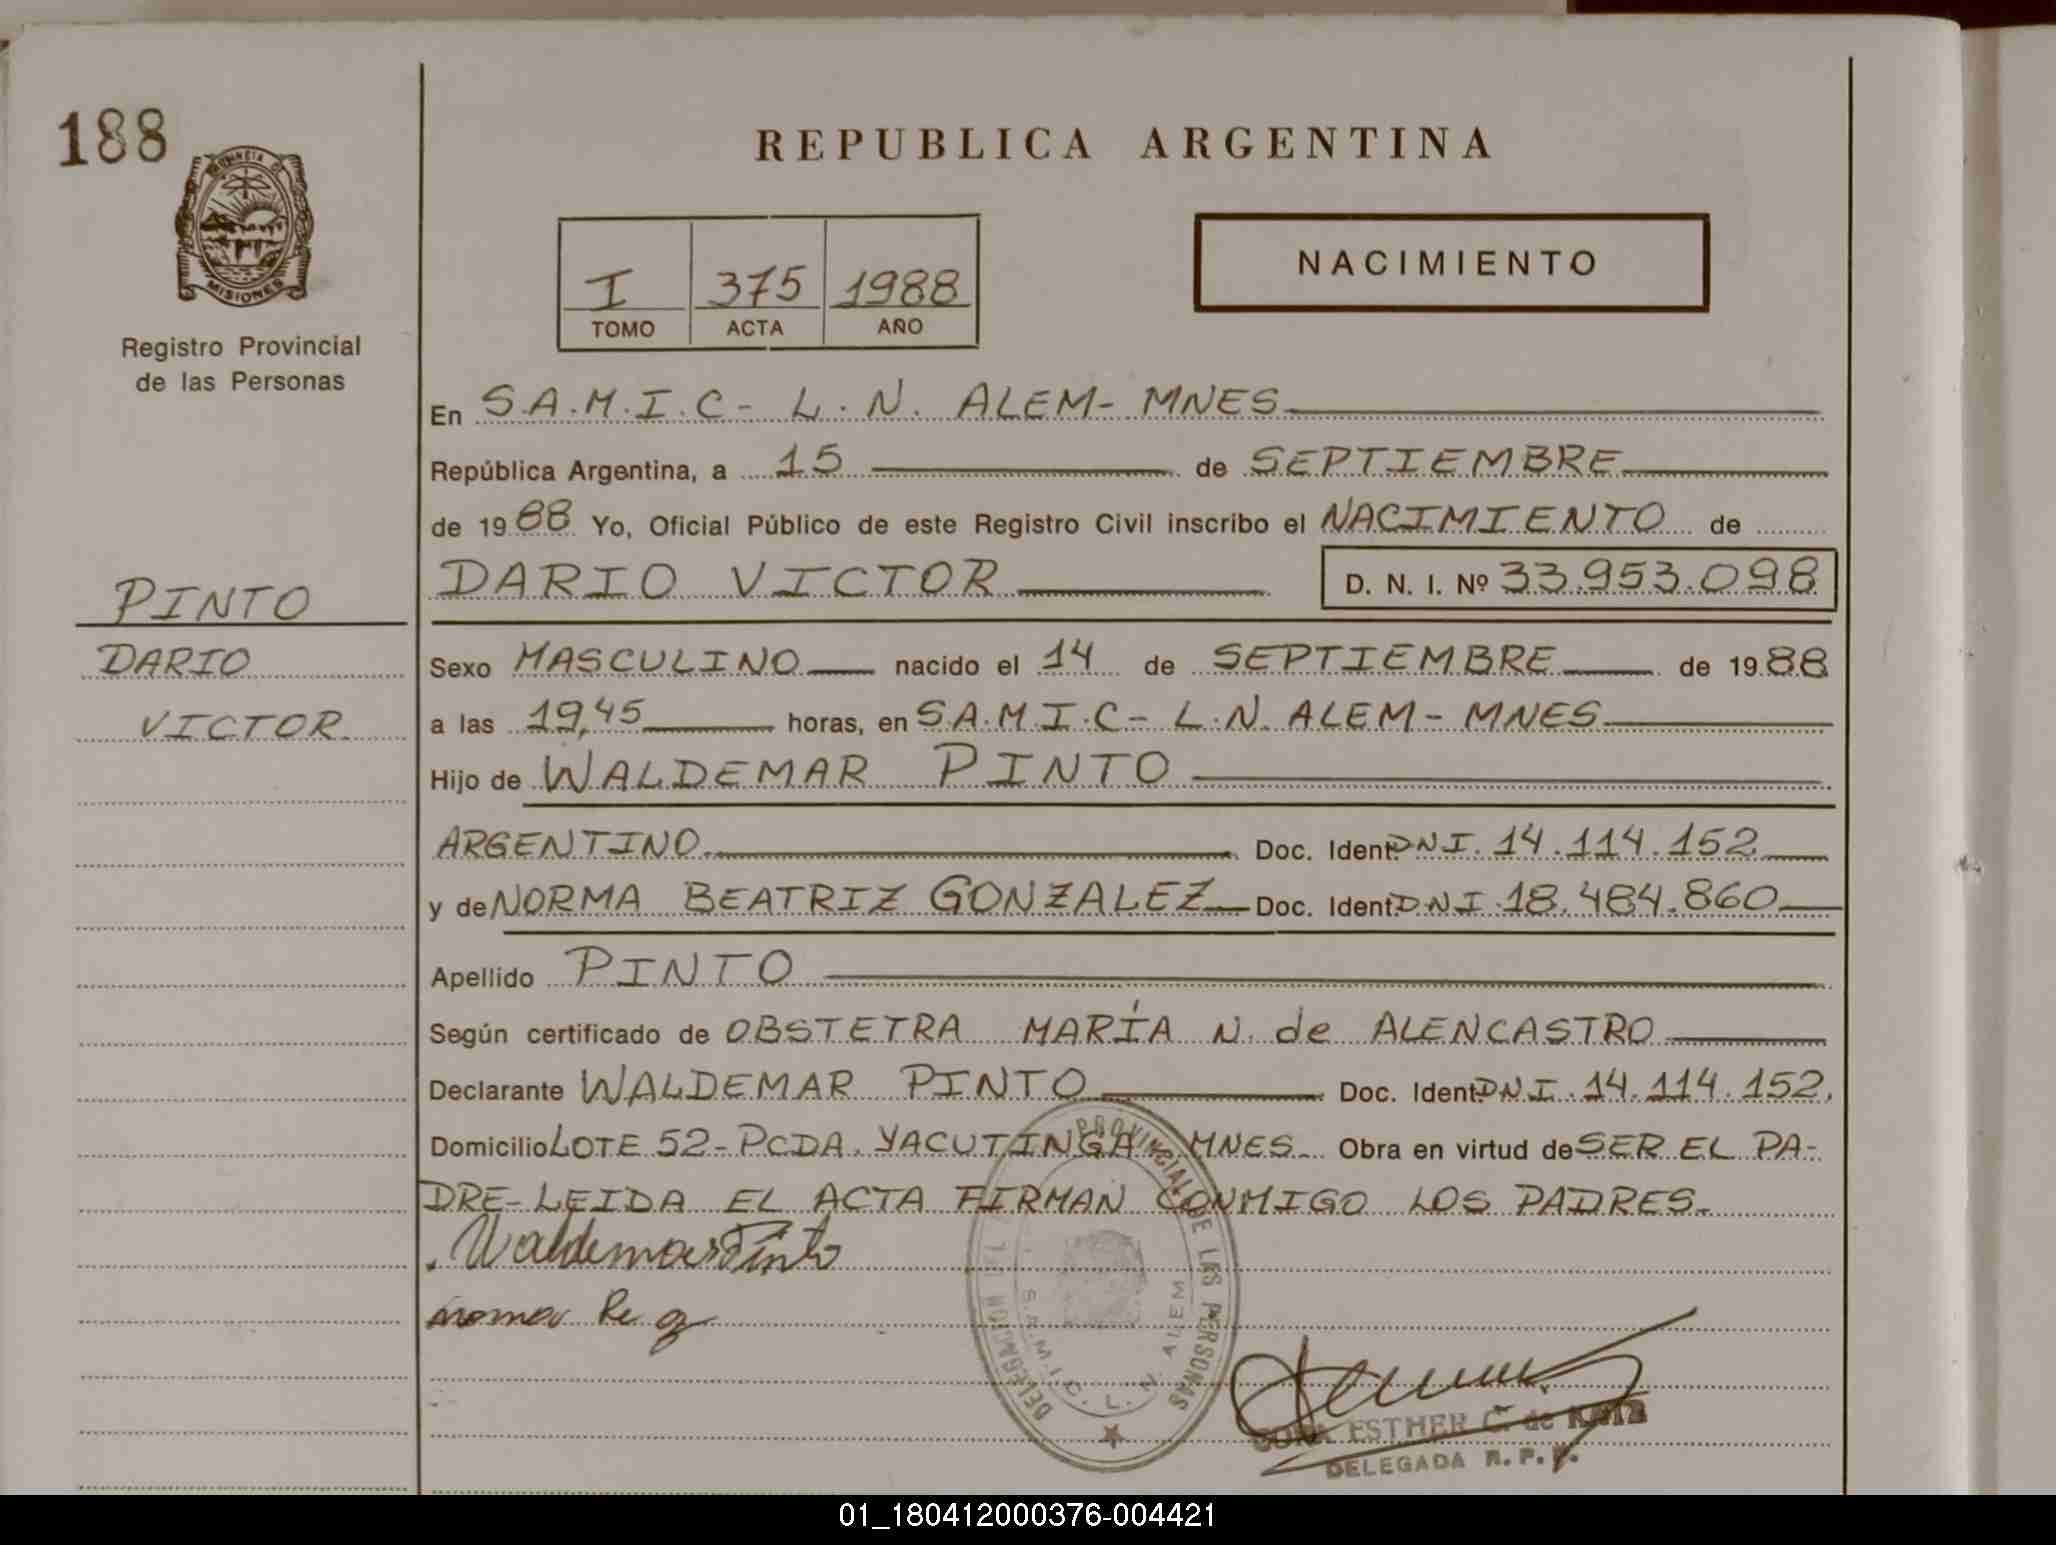 188
PROVINCIA DE
MISIONES
Registro Provincial
de las Personas
PINTO
DARIO
VICTOR
REPUBLICA ARGENTINA
I 375 1988
TOMO ACTA AÑO
NACIMIENTO
En S.A.M.I.C - L. N. ALEM - MNES
República Argentina, a 15 de SEPTIEMBRE
de 1988 Yo, Oficial Público de este Registro Civil inscribo el NACIMIENTO de
DARIO VICTOR D. N. I. Nº 33.953.098
Sexo MASCULINO nacido el 14 de SEPTIEMBRE de 1988
a las 19,45 horas, en S.A.M.I.C - L.N. ALEM - MNES
Hijo de WALDEMAR PINTO
ARGENTINO Doc. Ident. DNI. 14.114.152
y de NORMA BEATRIZ GONZALEZ Doc. Ident. DNI. 18.484.860
Apellido PINTO
Según certificado de OBSTETRA MARÍA N. de ALENCASTRO
Declarante WALDEMAR PINTO Doc. Ident. DNI. 14.114.152.
Domicilio LOTE 52 - PCDA. YACUTINGA MNES. Obra en virtud de SER EL PA-
DRE - LEIDA EL ACTA FIRMAN CONMIGO LOS PADRES.
Waldemar Pinto
DELEGACION DEL PROVINCIAL DE LAS PERSONAS
S.A.M.I.C. L. N. ALEM
ESTHER C. de
DELEGADA R. P. P.
01_180412000376-004421